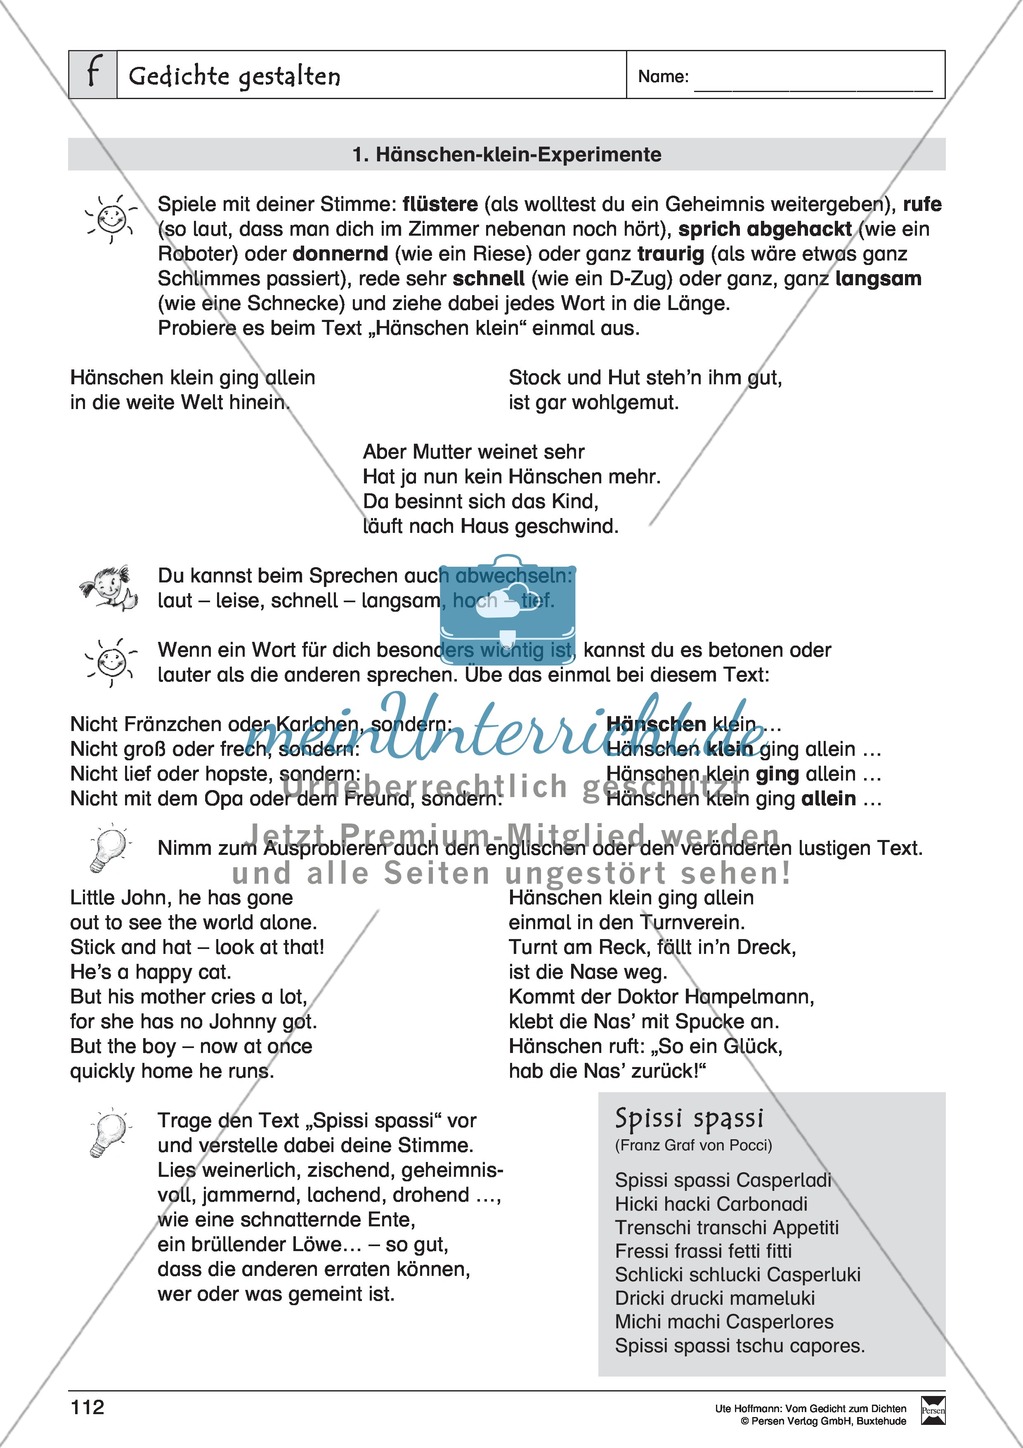 f Gedichte gestalten Name:
1. Hänschen-klein-Experimente
Spiele mit deiner Stimme: flüstere (als wolltest du ein Geheimnis weitergeben), rufe
(so laut, dass man dich im Zimmer nebenan noch hört), sprich abgehackt (wie ein
Roboter) oder donnernd (wie ein Riese) oder ganz traurig (als wäre etwas ganz
Schlimmes passiert), rede sehr schnell (wie ein D-Zug) oder ganz, ganz langsam
(wie eine Schnecke) und ziehe dabei jedes Wort in die Länge.
Probiere es beim Text „Hänschen klein“ einmal aus.
Hänschen klein ging allein
in die weite Welt hinein.
Stock und Hut steh’n ihm gut,
ist gar wohlgemut.
Aber Mutter weinet sehr
Hat ja nun kein Hänschen mehr.
Da besinnt sich das Kind,
läuft nach Haus geschwind.
Du kannst beim Sprechen auch abwechseln:
laut – leise, schnell – langsam, hoch – tief.
Wenn ein Wort für dich besonders wichtig ist, kannst du es betonen oder
lauter als die anderen sprechen. Übe das einmal bei diesem Text:
Nicht Fränzchen oder Karlchen, sondern: Hänschen klein …
Nicht groß oder frech, sondern: Hänschen klein ging allein …
Nicht lief oder hopste, sondern: Hänschen klein ging allein …
Nicht mit dem Opa oder dem Freund, sondern: Hänschen klein ging allein …
meinUnterricht.de
Urheberrechtlich geschützt
Jetzt Premium-Mitglied werden
und alle Seiten ungestört sehen!
Nimm zum Ausprobieren auch den englischen oder den veränderten lustigen Text.
Little John, he has gone
out to see the world alone.
Stick and hat – look at that!
He’s a happy cat.
But his mother cries a lot,
for she has no Johnny got.
But the boy – now at once
quickly home he runs.
Hänschen klein ging allein
einmal in den Turnverein.
Turnt am Reck, fällt in’n Dreck,
ist die Nase weg.
Kommt der Doktor Hampelmann,
klebt die Nas’ mit Spucke an.
Hänschen ruft: „So ein Glück,
hab die Nas’ zurück!“
Trage den Text „Spissi spassi“ vor
und verstelle dabei deine Stimme.
Lies weinerlich, zischend, geheimnis-
voll, jammernd, lachend, drohend …,
wie eine schnatternde Ente,
ein brüllender Löwe… – so gut,
dass die anderen erraten können,
wer oder was gemeint ist.
Spissi spassi
(Franz Graf von Pocci)
Spissi spassi Casperladi
Hicki hacki Carbonadi
Trenschi transchi Appetiti
Fressi frassi fetti fitti
Schlicki schlucki Casperluki
Dricki drucki mameluki
Michi machi Casperlores
Spissi spassi tschu capores.
112
Ute Hoffmann: Vom Gedicht zum Dichten
© Persen Verlag GmbH, Buxtehude
Persen